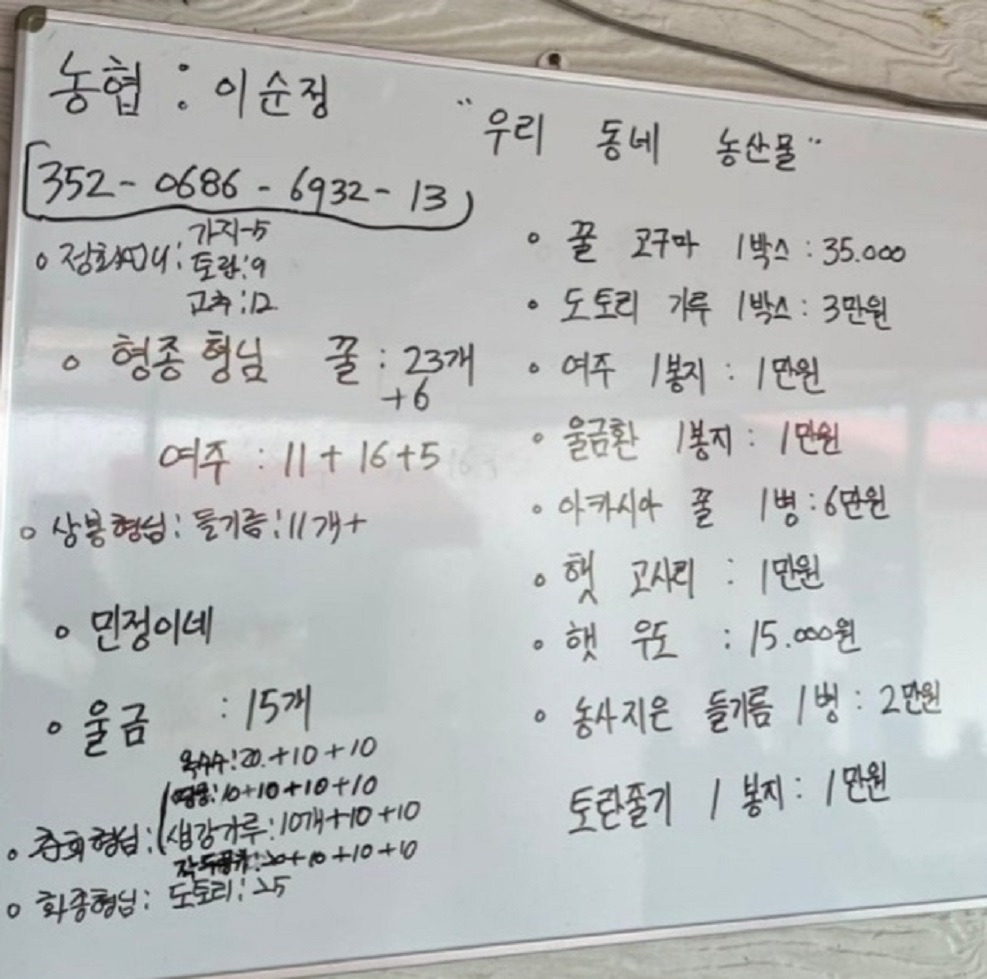 농협 : 이순정
352 - 0686 - 6932 - 13
정화언니 : 가지-5
토란 : 9
고추 : 12
형종 형님 꿀 : 23개
+6
여주 : 11 + 16 + 5
상봉형님 : 들기름 : 11개+
민정이네
울금 : 15개
옥수수 : 20 + 10 + 10
10 + 10 + 10 + 10
형님 : 생강가루 : 10개 + 10 + 10
+ 10 + 10 + 10
화종형님 : 도토리 : 25
"우리 동네 농산물"
꿀 고구마 1박스 : 35.000
도토리 가루 1박스 : 3만원
여주 1봉지 : 1만원
울금환 1봉지 : 1만원
아카시아 꿀 1병 : 6만원
햇 고사리 : 1만원
햇 우도 : 15.000원
농사지은 들기름 1병 : 2만원
토란줄기 1 봉지 : 1만원